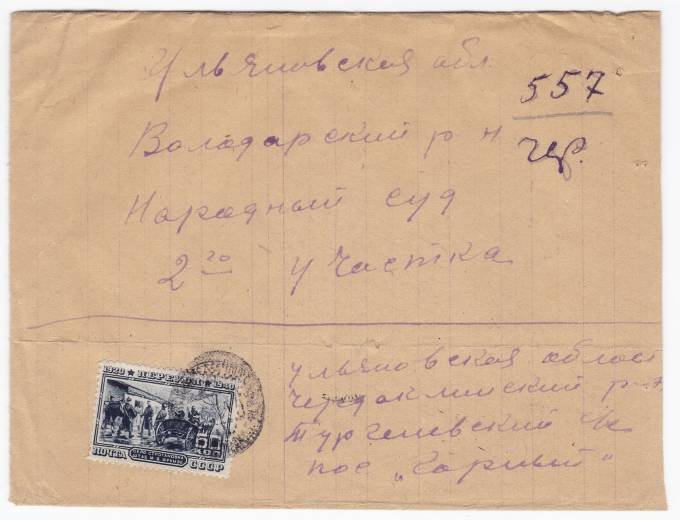 Ульяновская обл
557
Володарский р н
чер.
Народный суд
2го участка
1920 ПЕРЕКОП 1940
50 КОП
ПОЧТА СССР
ульяновская област
Чердаклинский р-н
Тургеневский с/с
пос „Горный"